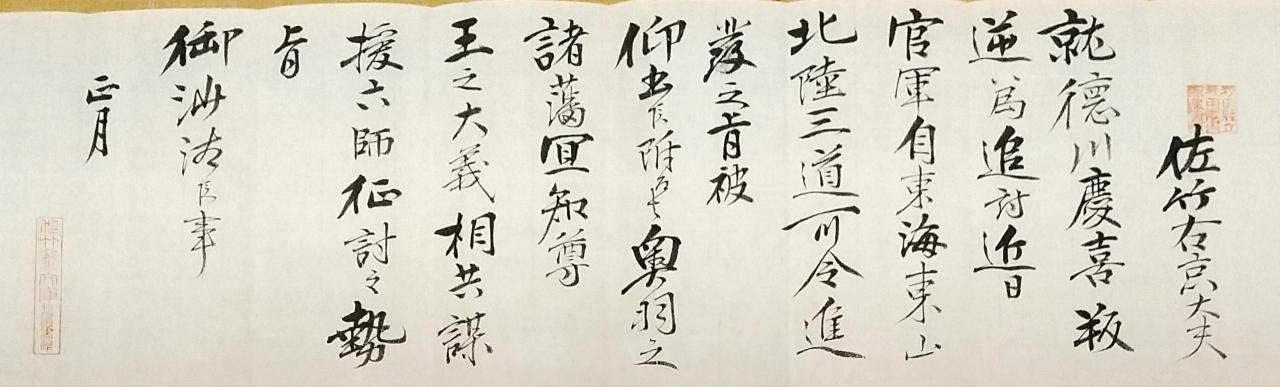 佐竹右京大夫
就德川慶喜叛
逆爲追討近日
官軍自東海東山
北陸三道可令進
發之旨被
仰出候附而者奥羽之
諸藩宜知尊
王之大義相共謀
援六師征討之勢
旨
御沙汰候事
正月